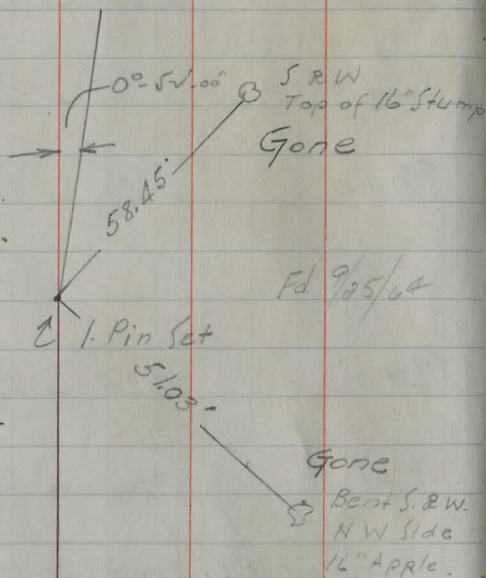 S R W
Top of 16" Stump
Gone
58.45'
Fd. 9/25/64
1. Pin Set
51.03'
Gone
Bent S. R W.
N W Side
16" Apple.